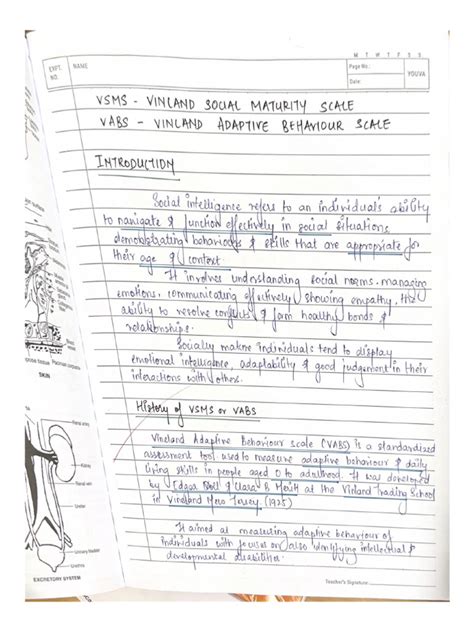 M T W T F S S
EXPT. NO.
NAME
Page No.:
Date:
YOUVA
VSMS - VINLAND SOCIAL MATURITY SCALE
VABS - VINLAND ADAPTIVE BEHAVIOUR SCALE
INTRODUCTION
Social intelligence refers to an individual's ability
to navigate & function effectively in social situations,
demonstrating behaviours & skills that are appropriate for
their age & context.
It involves understanding social norms, managing
emotions, communicating effectively, showing empathy, the
ability to resolve conflicts & form healthy bonds &
relationships.
Socially mature individuals tend to display
emotional intelligence, adaptability & good judgement in their
interactions with others.
History of VSMS or VABS
Vineland Adaptive Behaviour Scale (VABS) is a standardized
assessment tool used to measure adaptive behaviour & daily
living skills in people aged 0 to adulthood. It was developed
by Edgar Doll & at the Vinland Training School
in Vineland New Jersey (1935)
It aimed at measuring adaptive behaviour of
individuals with focus on also identifying intellectual &
developmental disabilities.
Teacher's Signature:
SKIN
Renal artery
Kidney
Renal vein
Ureter
Urinary bladder
Urethra
EXCRETORY SYSTEM